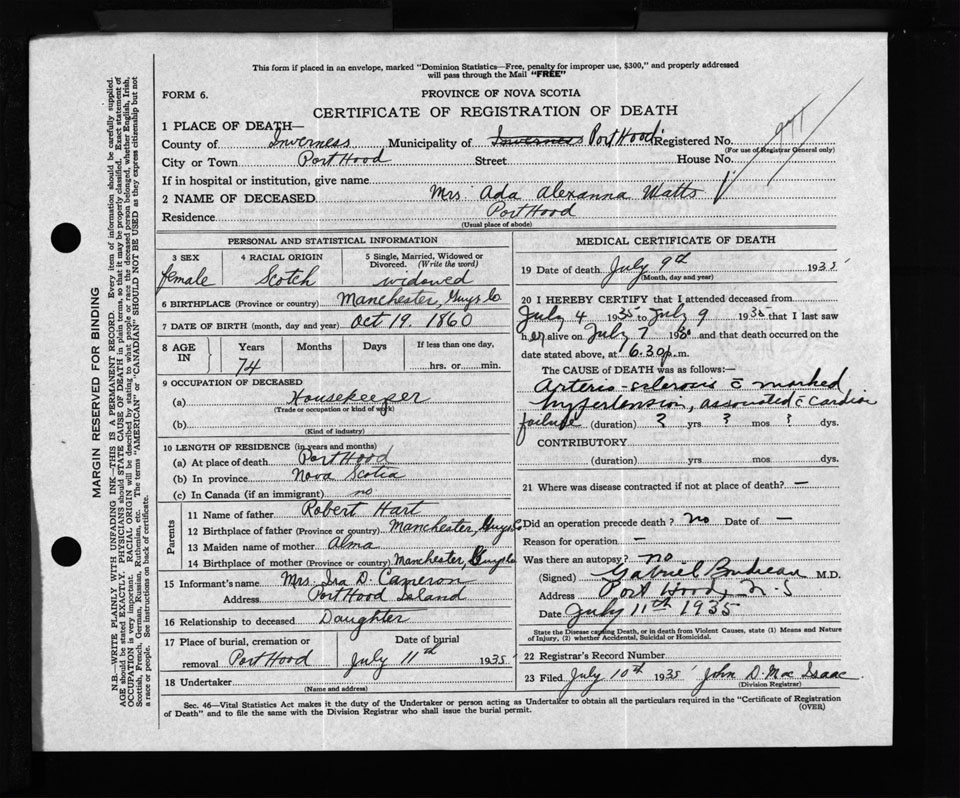 This form if placed in an envelope, marked "Dominion Statistics—Free, penalty for improper use, $300," and properly addressed
will pass through the Mail "FREE"
FORM 6.
PROVINCE OF NOVA SCOTIA
CERTIFICATE OF REGISTRATION OF DEATH
1 PLACE OF DEATH—
County of Inverness Municipality of Inverness Port Hood Registered No.
(For use of Registrar General only)
City or Town Port Hood Street House No.
If in hospital or institution, give name
2 NAME OF DECEASED Mrs. Ada Alexanna Watts
Residence Port Hood
(Usual place of abode)
PERSONAL AND STATISTICAL INFORMATION
3 SEX 4 RACIAL ORIGIN 5 Single, Married, Widowed or
Divorced. (Write the word)
female Scotch widowed
6 BIRTHPLACE (Province or country) Manchester, Guys. Co
7 DATE OF BIRTH (month, day and year) Oct 19. 1860
8 AGE IN Years Months Days If less than one day,
74 hrs. or min.
9 OCCUPATION OF DECEASED
(a) Housekeeper
(Trade or occupation or kind of work)
(b)
(Kind of industry)
10 LENGTH OF RESIDENCE (in years and months)
(a) At place of death Port Hood
(b) In province Nova Scotia
(c) In Canada (if an immigrant) no
Parents
11 Name of father Robert Hart
12 Birthplace of father (Province or country) Manchester, Guys Co
13 Maiden name of mother Alma
14 Birthplace of mother (Province or country) Manchester, Guys Co
15 Informant's name Mrs. Ira D. Cameron
Address Port Hood Island
16 Relationship to deceased Daughter
17 Place of burial, cremation or Date of burial
removal Port Hood July 11th 1935
18 Undertaker
(Name and address)
MEDICAL CERTIFICATE OF DEATH
19 Date of death July 9th 1935
(Month, day and year)
20 I HEREBY CERTIFY that I attended deceased from
July 4 1935 to July 9 1935 that I last saw
her alive on July 7 193 and that death occurred on the
date stated above, at 6.30 p.m.
The CAUSE of DEATH was as follows:—
Arterio-sclerosis c marked
hypertension, associated c cardiac
failure (duration) ? yrs ? mos ? dys.
CONTRIBUTORY
(duration) yrs. mos. dys.
21 Where was disease contracted if not at place of death? —
Did an operation precede death? no Date of —
Reason for operation —
Was there an autopsy? no
(Signed) Gabriel Boudreau M.D.
Address Port Hood, N-S
Date July 11th 1935
State the Disease causing Death, or in death from Violent Causes, state (1) Means and Nature
of Injury, (2) whether Accidental, Suicidal or Homicidal.
22 Registrar's Record Number
23 Filed July 10th 1935 John D. Mac Isaac
(Division Registrar)
Sec. 46—Vital Statistics Act makes it the duty of the Undertaker or person acting as Undertaker to obtain all the particulars required in the "Certificate of Registration
of Death" and to file the same with the Division Registrar who shall issue the burial permit. (OVER)
MARGIN RESERVED FOR BINDING
N.B.—WRITE PLAINLY WITH UNFADING INK—THIS IS A PERMANENT RECORD. Every item of information should be carefully supplied.
AGE should be stated EXACTLY. PHYSICIANS should STATE CAUSE OF DEATH in plain terms, so that it may be properly classified. Exact statement of
OCCUPATION is very important. RACIAL ORIGIN will be described by stating to what people or race the deceased person belonged, whether English, Irish,
Scottish, French, German, Russian, Ruthenian, etc. The terms "AMERICAN" or "CANADIAN" SHOULD NOT BE USED as they express citizenship but not
a race or people. See instructions on back of certificate.